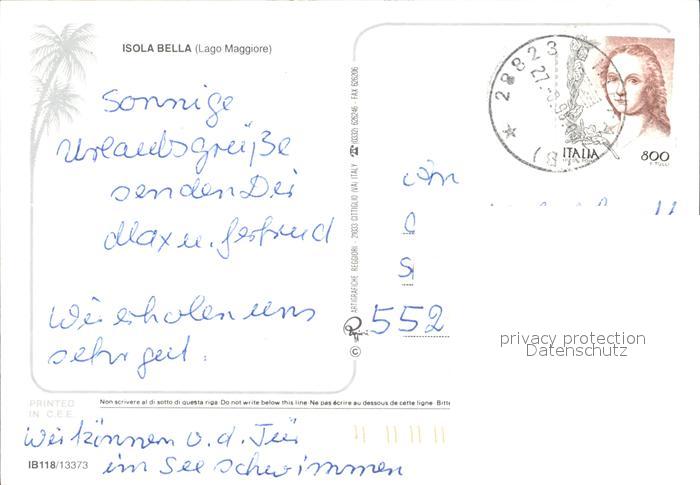 ISOLA BELLA (Lago Maggiore)
28823
27.8.9
(B
ITALIA 800
Sonnige
Urlaubsgrüße
senden Dir
Max u. Gertrud
Wir erholen uns
sehr gut.
ARTIGRAFICHE REGGIORI - 21033 CITTIGLIO (VA) ITALY ☎ (0332) 626246 - FAX 626206
©
552
privacy protection
Datenschutz
PRINTED
IN C.E.E.
Non scrivere al di sotto di questa riga Do not write below this line Ne pas écrire au dessous de cette ligne Bitte
Wir können v. d. Tür
im See schwimmen
IB118/13373